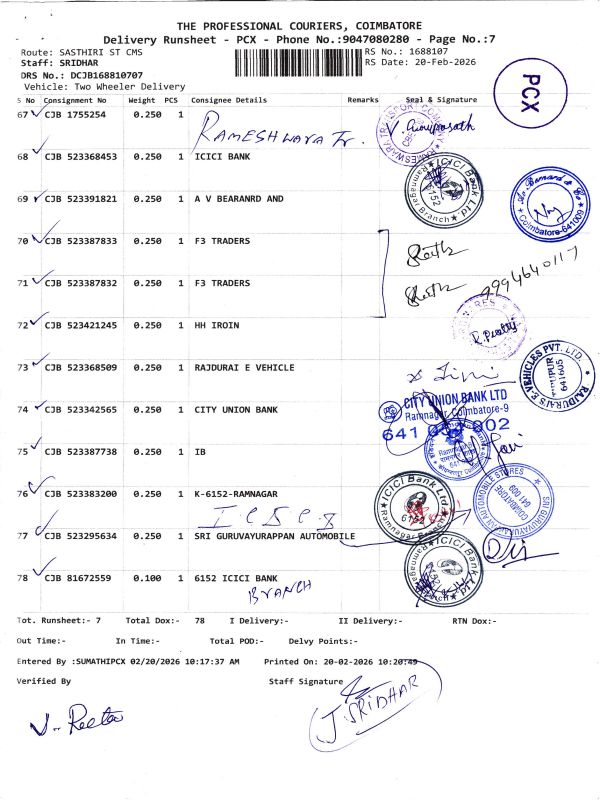 THE PROFESSIONAL COURIERS, COIMBATORE
Delivery Runsheet - PCX - Phone No.:9047080280 - Page No.:7
Route: SASTHIRI ST CMS
RS No.: 1688107
Staff: SRIDHAR
RS Date: 20-Feb-2026
DRS No.: DCJB168810707
Vehicle: Two Wheeler Delivery
PCX
S No Consignment No Weight PCS Consignee Details Remarks Seal & Signature
67 CJB 1755254 0.250 1
RAMESHWARA Tr.
68 CJB 523368453 0.250 1 ICICI BANK
ICICI Bank Ltd
6152
Ramnagar Branch
69 CJB 523391821 0.250 1 A V BEARANRD AND
Coimbatore-641009
70 CJB 523387833 0.250 1 F3 TRADERS
71 CJB 523387832 0.250 1 F3 TRADERS
9994640117
72 CJB 523421245 0.250 1 HH IROIN
73 CJB 523368509 0.250 1 RAJDURAI E VEHICLE
RAJDURAI'S E-VEHICLES PVT. LTD.
TIRUPUR
641605
74 CJB 523342565 0.250 1 CITY UNION BANK
CITY UNION BANK LTD
Ramnagar Coimbatore-9
75 CJB 523387738 0.250 1 IB
76 CJB 523383200 0.250 1 K-6152-RAMNAGAR
ICICI Bank Ltd
6152
Ramnagar Branch
77 CJB 523295634 0.250 1 SRI GURUVAYURAPPAN AUTOMOBILE
SRI GURUVAYURAPPAN AUTOMOBILE STORES
COIMBATORE
641 009
78 CJB 81672559 0.100 1 6152 ICICI BANK
BRANCH
Tot. Runsheet:- 7 Total Dox:- 78 I Delivery:- II Delivery:- RTN Dox:-
Out Time:- In Time:- Total POD:- Delvy Points:-
Entered By :SUMATHIPCX 02/20/2026 10:17:37 AM Printed On: 20-02-2026 10:20:49
Verified By Staff Signature
J. SRIDHAR